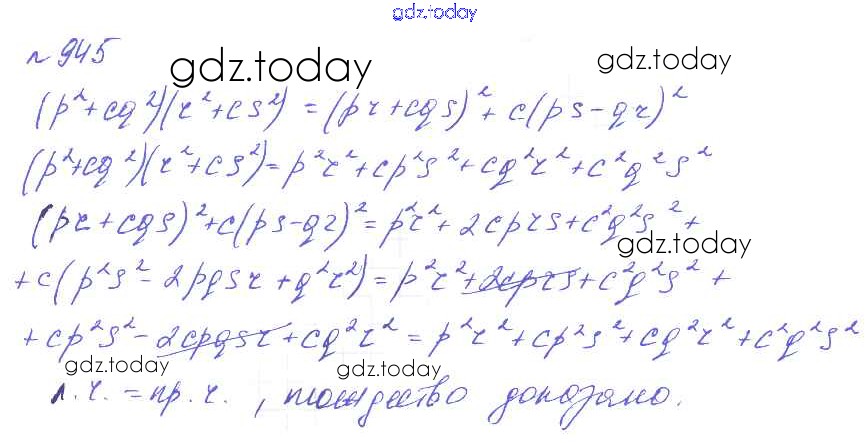 gdz.today
№ 945
gdz.today gdz.today
(p²+cq²)(r²+cs²) = (pr+cqs)² + c(ps-qr)²
(p²+cq²)(r²+cs²) = p²r²+cp²s²+cq²r²+c²q²s²
(pr+cqs)²+c(ps-qr)² = p²r²+2cprs+c²q²s²+
gdz.today
+c(p²s²-2pqsr+q²r²) = p²r²+2cprs+c²q²s²+
+cp²s²-2cpqsr+cq²r² = p²r²+cp²s²+cq²r²+c²q²s²
gdz.today gdz.today
л.ч. = пр.ч., тождество доказано.